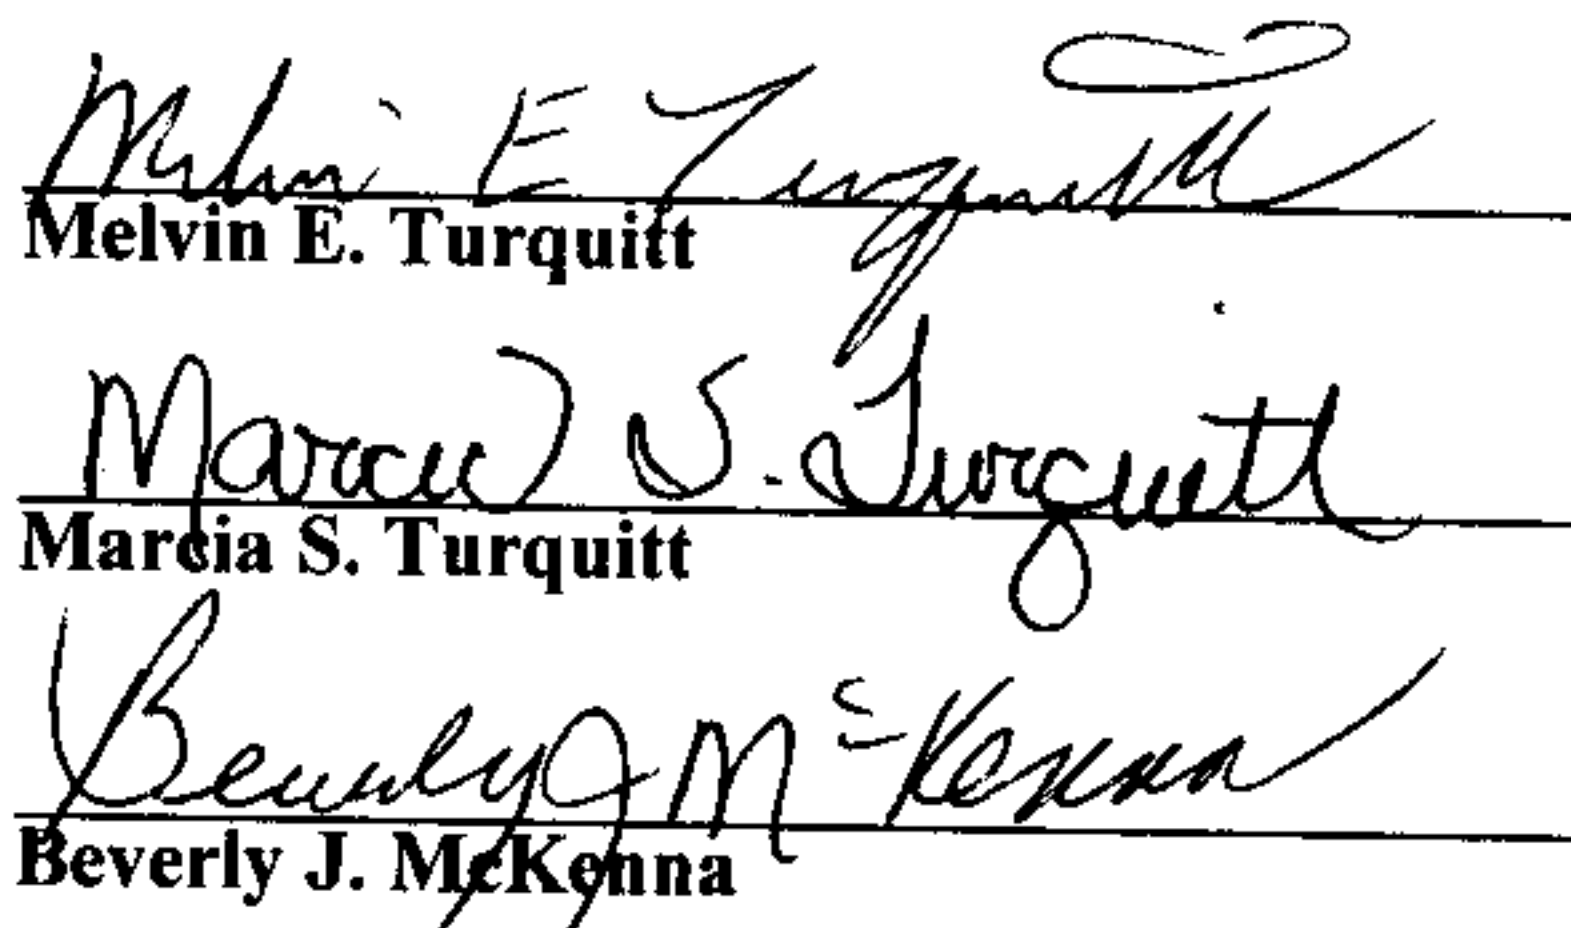 Melvin E Turquitt
Melvin E. Turquitt
Marcia S. Turquitt
Marcia S. Turquitt
Beverly J McKenna
Beverly J. McKenna